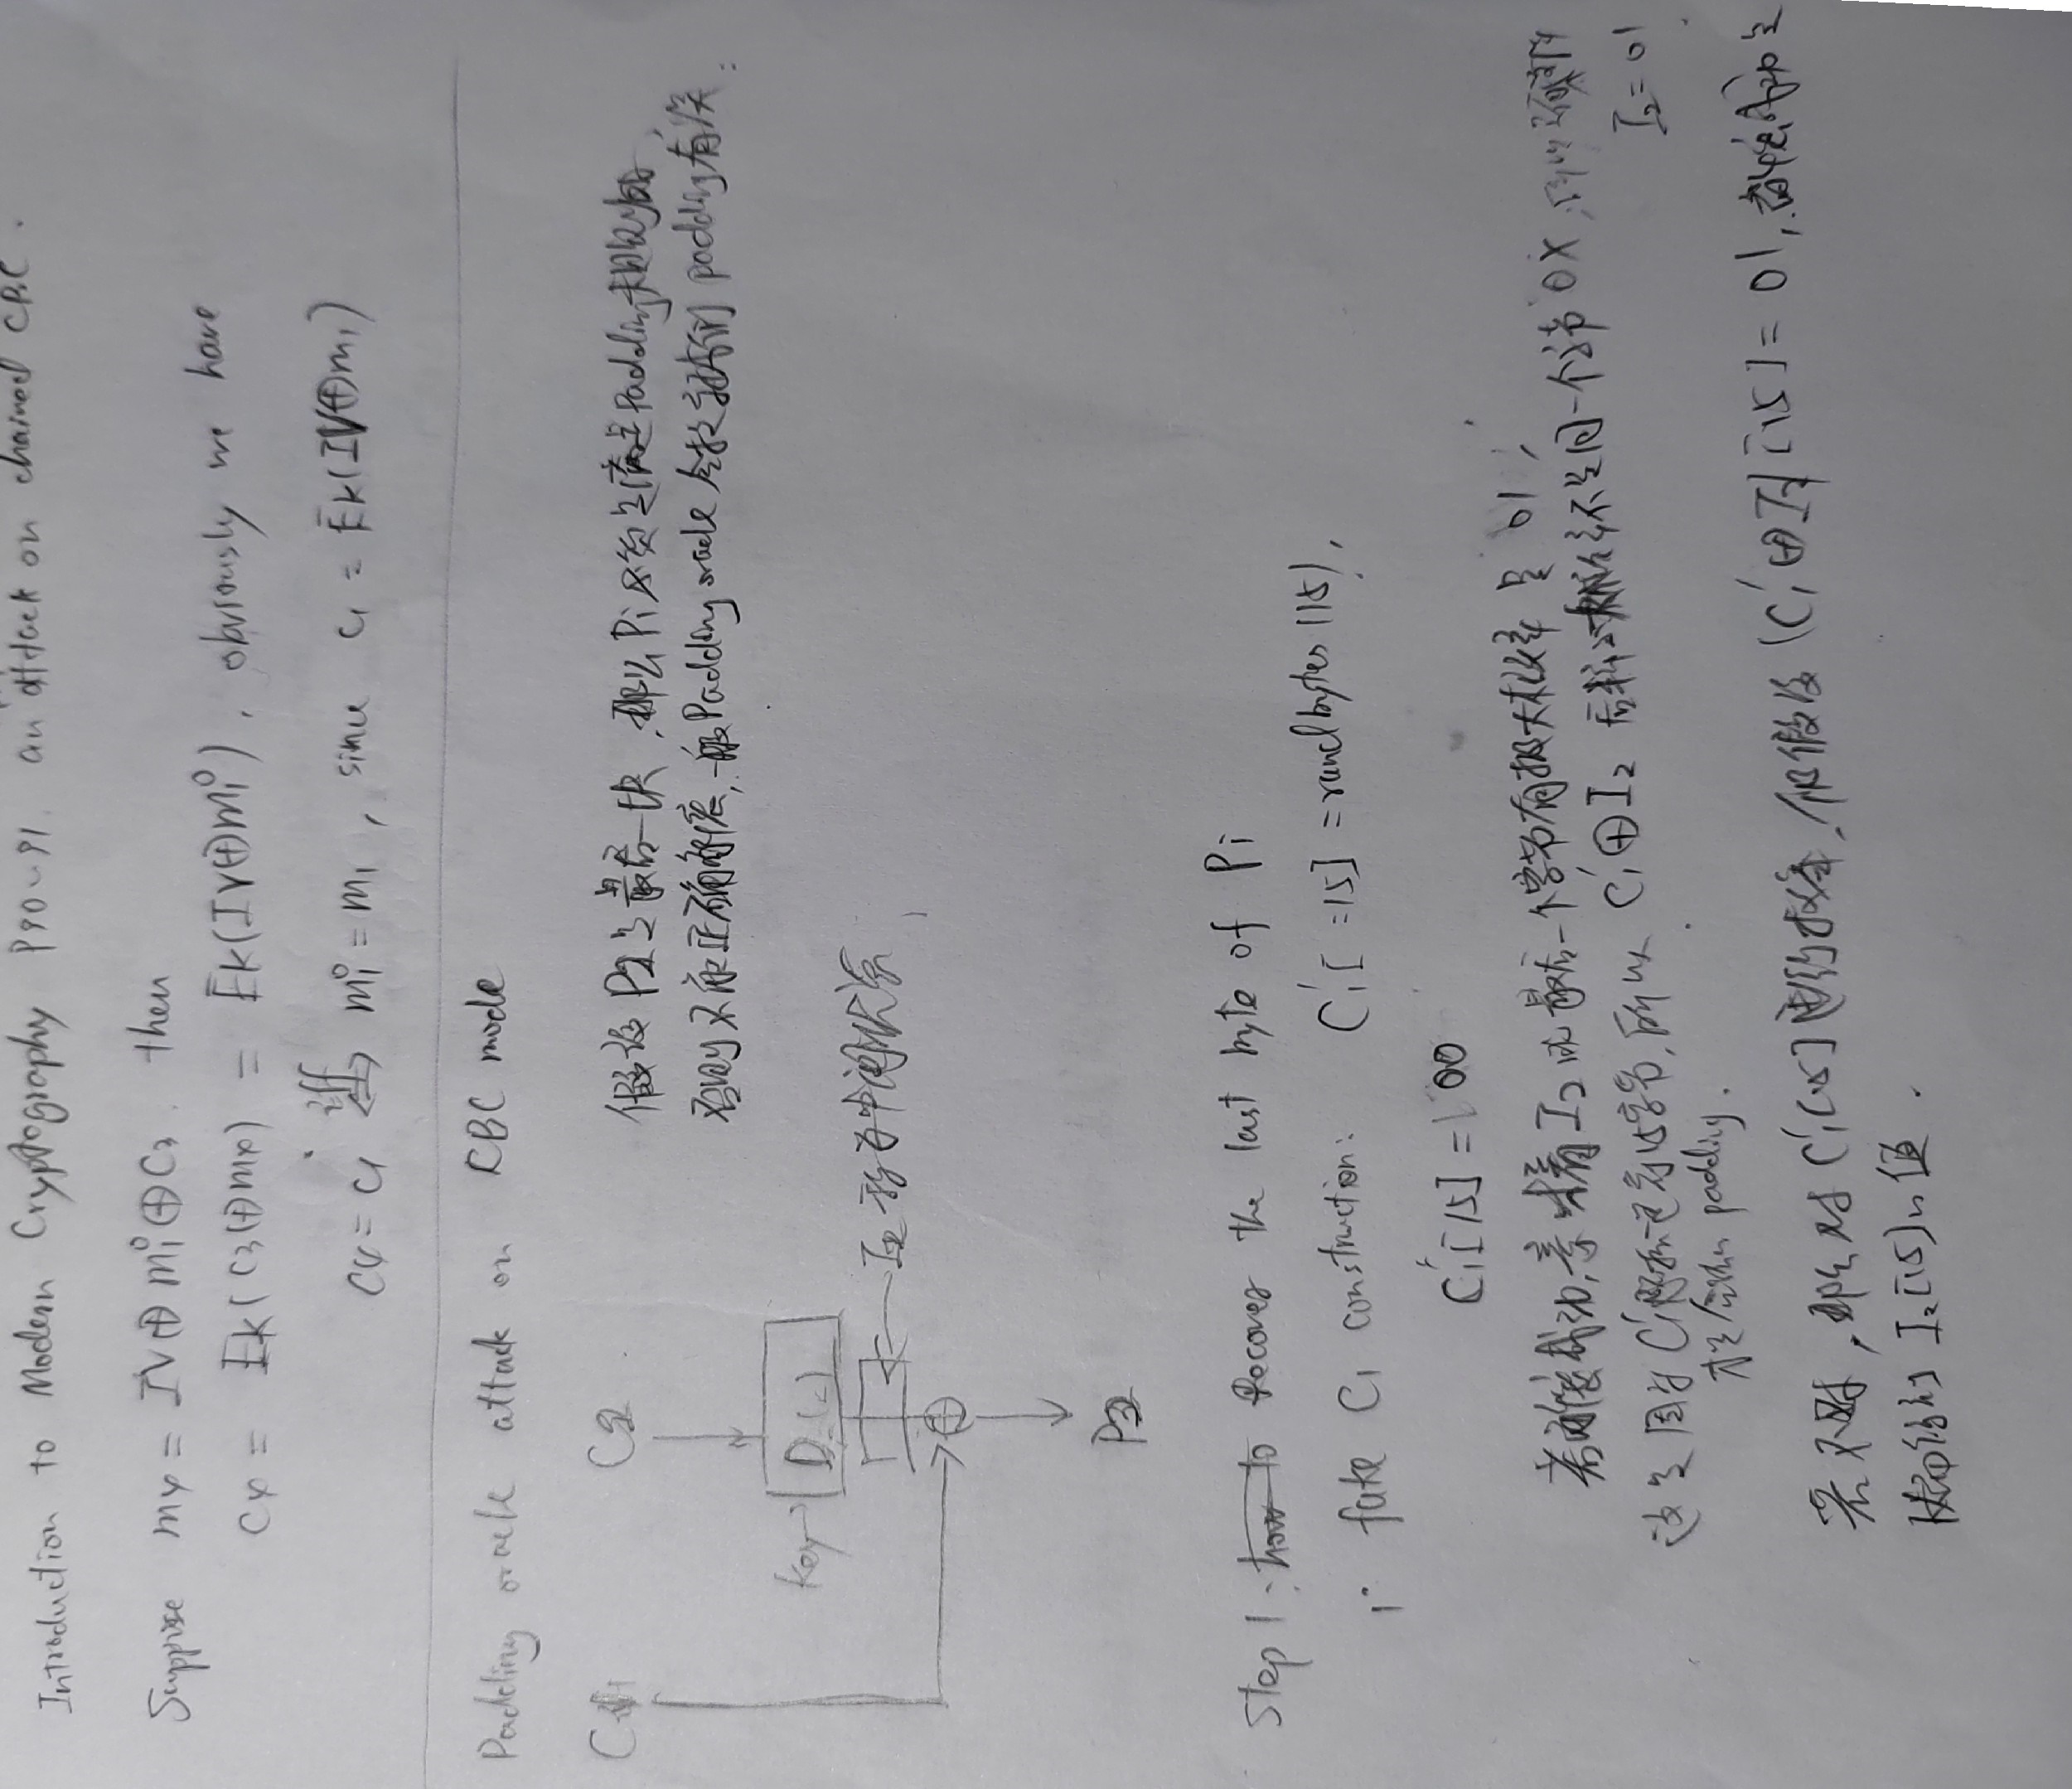 Introduction to Modern Cryptography P90~91. an attack on chained CBC.
Suppose m4 = IV⊕m1⁰⊕C3. then
C4 = Ek(C3⊕m4) = Ek(IV⊕m1⁰), obviously we have
C4 = C1 iff ⇔ m1⁰ = m1, since C1 = Ek(IV⊕m1)
Padding oracle attack on CBC mode
C1
C2
假设 P2是最后一块,那么Pi必须是满足Padding规则的,
否则不能正确解密,一般Padding oracle 会告诉我们 padding有误.
Key→ D_(.)
← I2 称为中间状态
P2
Step 1: how to Recover the last byte of Pi
1. fake C1 construction: C1'[:15] = randbytes(15),
C1'[15] = 00
若解密成功,意味着I2的最后一个字节有极大概率是01,
这是因为C1' 15字节,所以 C1'⊕I2 后 不是同一个字节0X,所以
I2=01
才是合法的padding.
若不对,那么对C1'[15]进行枚举,仍假设(C1'⊕I2)[15] = 01,
从而得到I2[15]的值.